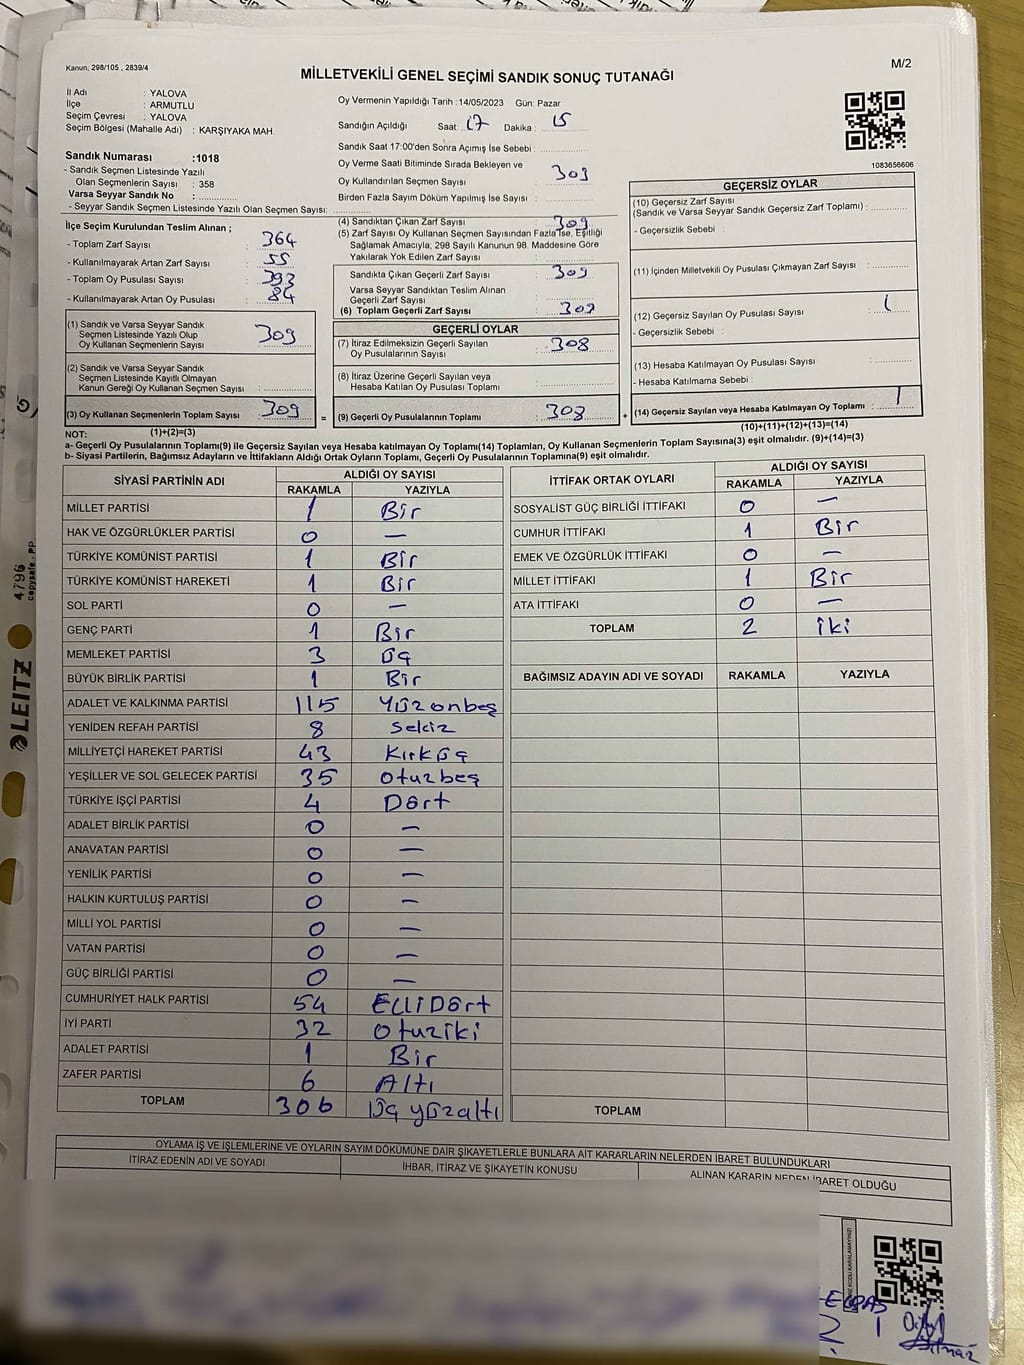 Kanun; 298/105 , 2839/4
M/2
MİLLETVEKİLİ GENEL SEÇİMİ SANDIK SONUÇ TUTANAĞI
İl Adı : YALOVA
İlçe : ARMUTLU
Seçim Çevresi : YALOVA
Seçim Bölgesi (Mahalle Adı) : KARŞIYAKA MAH.
Sandık Numarası :1018
- Sandık Seçmen Listesinde Yazılı
Olan Seçmenlerin Sayısı : 358
Varsa Seyyar Sandık No :
- Seyyar Sandık Seçmen Listesinde Yazılı Olan Seçmen Sayısı:
Oy Vermenin Yapıldığı Tarih :14/05/2023 Gün: Pazar
Sandığın Açıldığı Saat: 17 Dakika : 15
Sandık Saat 17:00'den Sonra Açımış İse Sebebi :
Oy Verme Saati Bitiminde Sırada Bekleyen ve
Oy Kullandırılan Seçmen Sayısı : 309
Birden Fazla Sayım Döküm Yapılmış İse Sayısı :
1083656606
İlçe Seçim Kurulundan Teslim Alınan ;
- Toplam Zarf Sayısı : 364
- Kullanılmayarak Artan Zarf Sayısı : 55
- Toplam Oy Pusulası Sayısı : 393
- Kullanılmayarak Artan Oy Pusulası : 84
(1) Sandık ve Varsa Seyyar Sandık
Seçmen Listesinde Yazılı Olup
Oy Kullanan Seçmenlerin Sayısı : 309
(2) Sandık ve Varsa Seyyar Sandık
Seçmen Listesinde Kayıtlı Olmayan
Kanun Gereği Oy Kullanan Seçmen Sayısı :
(3) Oy Kullanan Seçmenlerin Toplam Sayısı : 309
(1)+(2)=(3)
(4) Sandıktan Çıkan Zarf Sayısı : 309
(5) Zarf Sayısı Oy Kullanan Seçmen Sayısından Fazla İse, Eşitliği
Sağlamak Amacıyla; 298 Sayılı Kanunun 98. Maddesine Göre
Yakılarak Yok Edilen Zarf Sayısı :
Sandıkta Çıkan Geçerli Zarf Sayısı : 309
Varsa Seyyar Sandıktan Teslim Alınan
Geçerli Zarf Sayısı :
(6) Toplam Geçerli Zarf Sayısı : 309
GEÇERLİ OYLAR
(7) İtiraz Edilmeksizin Geçerli Sayılan
Oy Pusulalarının Sayısı : 308
(8) İtiraz Üzerine Geçerli Sayılan ve
Hesaba Katılan Oy Pusulası Toplamı :
= (9) Geçerli Oy Pusulalarının Toplamı : 308
GEÇERSİZ OYLAR
(10) Geçersiz Zarf Sayısı
(Sandık ve Varsa Seyyar Sandık Geçersiz Zarf Toplamı) :
- Geçersizlik Sebebi :
(11) İçinden Milletvekili Oy Pusulası Çıkmayan Zarf Sayısı :
(12) Geçersiz Sayılan Oy Pusulası Sayısı : 1
- Geçersizlik Sebebi :
(13) Hesaba Katılmayan Oy Pusulası Sayısı :
- Hesaba Katılmama Sebebi :
+ (14) Geçersiz Sayılan veya Hesaba Katılmayan Oy Toplamı : 1
(10)+(11)+(12)+(13)=(14)
NOT:
a- Geçerli Oy Pusulalarının Toplamı(9) ile Geçersiz Sayılan veya Hesaba katılmayan Oy Toplamı(14) Toplamları, Oy Kullanan Seçmenlerin Toplam Sayısına(3) eşit olmalıdır. (9)+(14)=(3)
b- Siyasi Partilerin, Bağımsız Adayların ve İttifakların Aldığı Ortak Oyların Toplamı, Geçerli Oy Pusulalarının Toplamına(9) eşit olmalıdır.
SİYASİ PARTİNİN ADI ALDIĞI OY SAYISI
RAKAMLA YAZIYLA
MİLLET PARTİSİ 1 Bir
HAK VE ÖZGÜRLÜKLER PARTİSİ 0 —
TÜRKİYE KOMÜNİST PARTİSİ 1 Bir
TÜRKİYE KOMÜNİST HAREKETİ 1 Bir
SOL PARTİ 0 —
GENÇ PARTİ 1 Bir
MEMLEKET PARTİSİ 3 Üç
BÜYÜK BİRLİK PARTİSİ 1 Bir
ADALET VE KALKINMA PARTİSİ 115 Yüzonbeş
YENİDEN REFAH PARTİSİ 8 Sekiz
MİLLİYETÇİ HAREKET PARTİSİ 43 Kırküç
YEŞİLLER VE SOL GELECEK PARTİSİ 35 Otuzbeş
TÜRKİYE İŞÇİ PARTİSİ 4 Dört
ADALET BİRLİK PARTİSİ 0 —
ANAVATAN PARTİSİ 0 —
YENİLİK PARTİSİ 0 —
HALKIN KURTULUŞ PARTİSİ 0 —
MİLLİ YOL PARTİSİ 0 —
VATAN PARTİSİ 0 —
GÜÇ BİRLİĞİ PARTİSİ 0 —
CUMHURİYET HALK PARTİSİ 54 Elli Dört
İYİ PARTİ 32 Otuziki
ADALET PARTİSİ 1 Bir
ZAFER PARTİSİ 6 Altı
TOPLAM 306 Üç yüzaltı
İTTİFAK ORTAK OYLARI ALDIĞI OY SAYISI
RAKAMLA YAZIYLA
SOSYALİST GÜÇ BİRLİĞİ İTTİFAKI 0 —
CUMHUR İTTİFAKI 1 Bir
EMEK VE ÖZGÜRLÜK İTTİFAKI 0 —
MİLLET İTTİFAKI 1 Bir
ATA İTTİFAKI 0 —
TOPLAM 2 İki
BAĞIMSIZ ADAYIN ADI VE SOYADI RAKAMLA YAZIYLA
TOPLAM
OYLAMA İŞ VE İŞLEMLERİNE VE OYLARIN SAYIM DÖKÜMÜNE DAİR ŞİKAYETLERLE BUNLARA AİT KARARLARIN NELERDEN İBARET BULUNDUKLARI
İTİRAZ EDENİN ADI VE SOYADI İHBAR, İTİRAZ VE ŞİKAYETİN KONUSU ALINAN KARARIN NEDEN İBARET OLDUĞU
LEITZ
4796
copysafe . PP